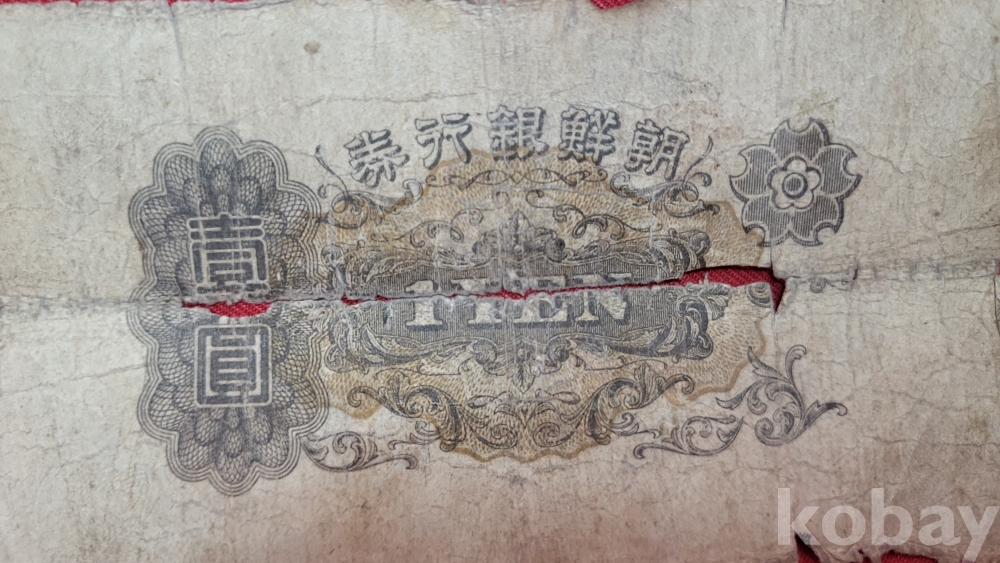 朝鮮銀行券
壹圓
1 YEN
kobay